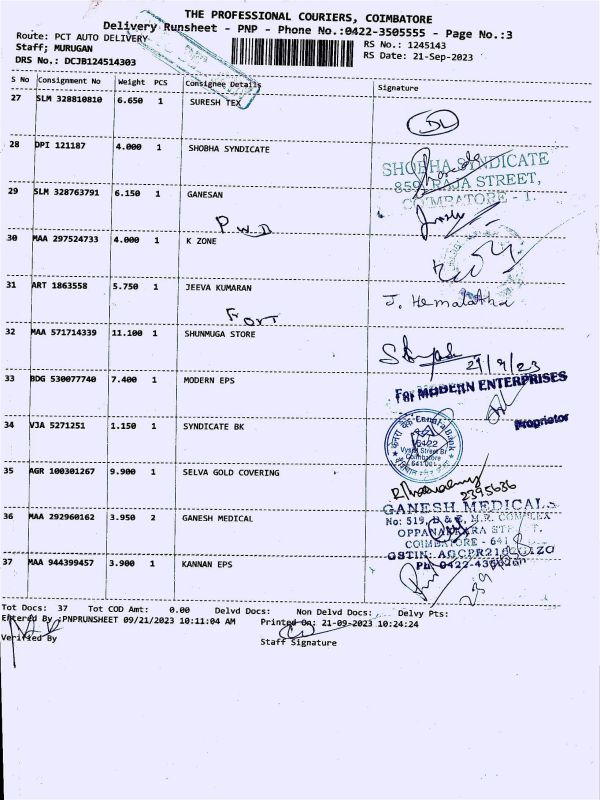 THE PROFESSIONAL COURIERS, COIMBATORE
Delivery Runsheet - PNP - Phone No.:0422-3505555 - Page No.:3
Route: PCT AUTO DELIVERY
RS No.: 1245143
Staff; MURUGAN
RS Date: 21-Sep-2023
DRS No.: DCJB124514303
S No Consignment No Weight PCS Consignee Details Signature
27 SLM 328810810 6.650 1 SURESH TEX
28 DPI 121187 4.000 1 SHOBHA SYNDICATE
SHOBHA SYNDICATE
859, RAJA STREET,
COIMBATORE - 1.
29 SLM 328763791 6.150 1 GANESAN
P.W.D
30 MAA 297524733 4.000 1 K ZONE
31 ART 1863558 5.750 1 JEEVA KUMARAN
J. Hemalatha
Fort
32 MAA 571714339 11.100 1 SHUNMUGA STORE
21/9/23
33 BDG 530077740 7.400 1 MODERN EPS
For MODERN ENTERPRISES
Proprietor
34 VJA 5271251 1.150 1 SYNDICATE BK
Canara Bank
Coimbatore
641 001
35 AGR 100301267 9.900 1 SELVA GOLD COVERING
2395636
36 MAA 292960162 3.950 2 GANESH MEDICAL
GANESH MEDICALS
No: 519,
COIMBATORE - 641
37 MAA 944399457 3.900 1 KANNAN EPS
Tot Docs: 37 Tot COD Amt: 0.00 Delvd Docs: Non Delvd Docs: Delvy Pts:
Entered By :PNPRUNSHEET 09/21/2023 10:11:04 AM Printed On: 21-09-2023 10:24:24
Verified By
Staff Signature